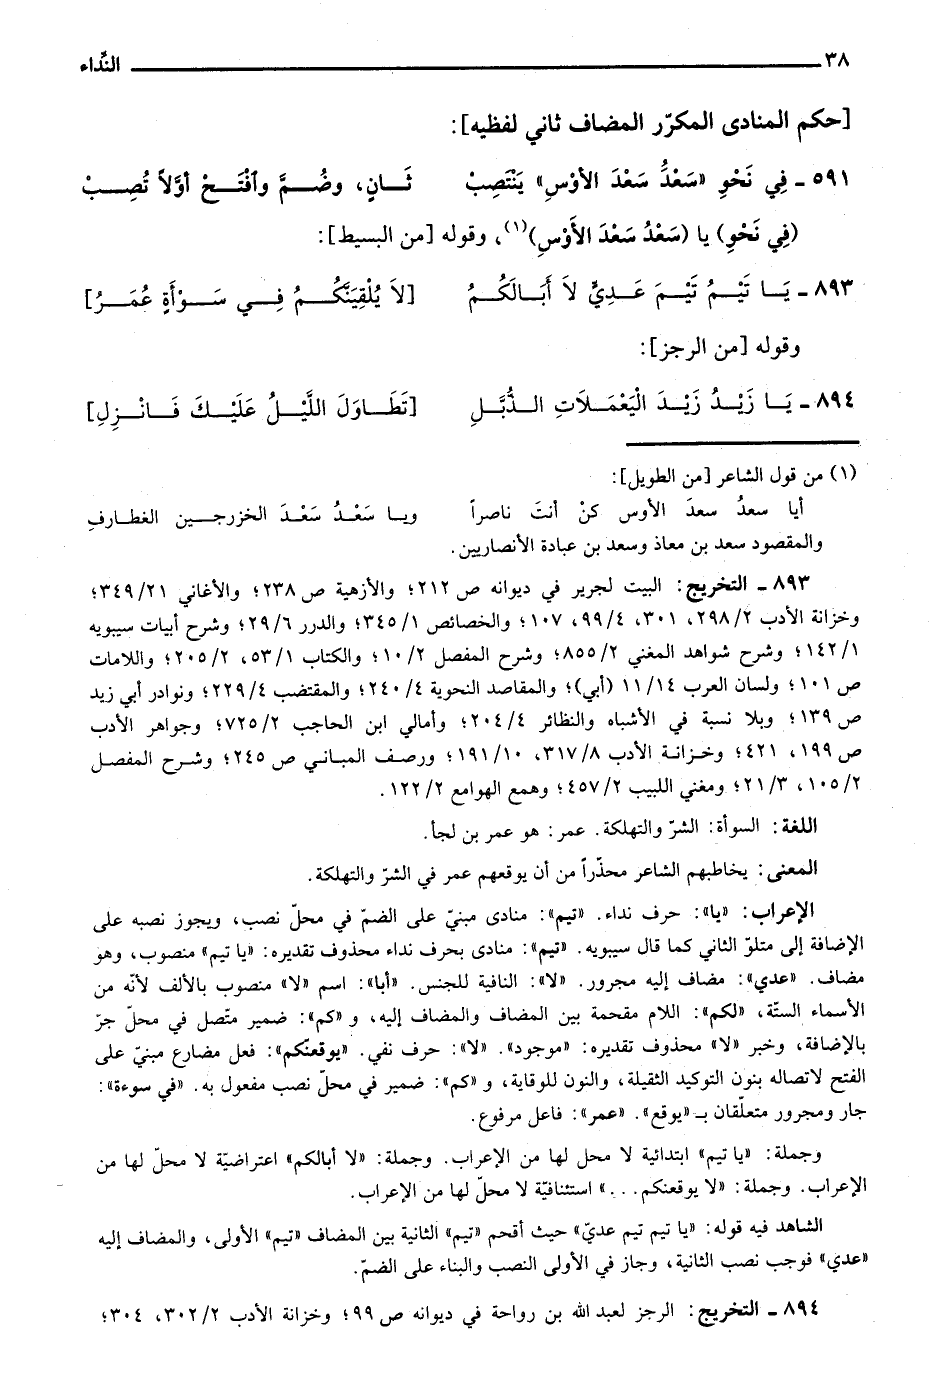 ٣٨ النّداء
[حكم المنادى المكرّر المضاف ثاني لفظيه]:
٥٩١ ـ فِي نَحْوِ «سَعْدُ سَعْدَ الأَوْسِ» يَنْتَصِبْ ثَــانٍ، وَضُــمَّ وَافْتَــحْ أَوَّلاً تُصِــبْ
(فِي نَحْوِ) يا (سَعْدُ سَعْدَ الأَوْسِ)(١)، وقوله [من البسيط]:
٨٩٣ ـ يَــا تَيْــمُ تَيْــمَ عَــدِيٍّ لاَ أَبَــالَكُــمُ [لاَ يُلْقِيَنَّكُــمُ فِــي سَــوْأَةٍ عُمَــرُ]
وقوله [من الرجز]:
٨٩٤ ـ يَــا زَيْــدُ زَيْــدَ الْيَعْمَــلاَتِ الــذُّبَّــلِ [تَطَــاوَلَ اللَّيْــلُ عَلَيْــكَ فَــانْــزِلِ]
(١) من قول الشاعر [من الطويل]:
أيا سعدُ سعدَ الأوس كنْ أنتَ ناصراً ويــا سَعْــدُ سَعْــدَ الخزرجــين الغطــارفِ
والمقصود سعد بن معاذ وسعد بن عبادة الأنصاريين.
٨٩٣ ـ التخريج: البيت لجرير في ديوانه ص ٢١٢؛ والأزهية ص ٢٣٨؛ والأغاني ٣٤٩/٢١؛
وخزانة الأدب ٢٩٨/٢، ٣٠١، ٩٩/٤، ١٠٧؛ والخصائص ٣٤٥/١؛ والدرر ٢٩/٦؛ وشرح أبيات سيبويه
١٤٢/١؛ وشرح شواهد المغني ٨٥٥/٢؛ وشرح المفصل ١٠/٢؛ والكتاب ٥٣/١، ٢٠٥/٢؛ واللامات
ص ١٠١؛ ولسان العرب ١١/١٤ (أبي)؛ والمقاصد النحوية ٢٤٠/٤؛ والمقتضب ٢٢٩/٤؛ ونوادر أبي زيد
ص ١٣٩؛ وبلا نسبة في الأشباه والنظائر ٢٠٤/٤؛ وأمالي ابن الحاجب ٧٢٥/٢؛ وجواهر الأدب
ص ١٩٩، ٤٢١؛ وخزانة الأدب ٣١٧/٨، ١٩١/١٠؛ ورصف المباني ص ٢٤٥؛ وشرح المفصل
١٠٥/٢، ٢١/٣؛ ومغني اللبيب ٤٥٧/٢؛ وهمع الهوامع ١٢٢/٢.
اللغة: السوأة: الشرّ والتهلكة. عمر: هو عمر بن لجأ.
المعنى: يخاطبهم الشاعر محذّراً من أن يوقعهم عمر في الشرّ والتهلكة.
الإعراب: «يا»: حرف نداء. «تيم»: منادى مبنيّ على الضمّ في محلّ نصب، ويجوز نصبه على
الإضافة إلى متلوّ الثاني كما قال سيبويه. «تيم»: منادى بحرف نداء محذوف تقديره: «يا تيم» منصوب، وهو
مضاف. «عدي»: مضاف إليه مجرور. «لا»: النافية للجنس. «أبا»: اسم «لا» منصوب بالألف لأنّه من
الأسماء الستّة، «لكم»: اللام مقحمة بين المضاف والمضاف إليه، و «كم»: ضمير متّصل في محلّ جرّ
بالإضافة، وخبر «لا» محذوف تقديره: «موجود». «لا»: حرف نفي. «يوقعنّكم»: فعل مضارع مبنيّ على
الفتح لاتصاله بنون التوكيد الثقيلة، والنون للوقاية، و «كم»: ضمير في محلّ نصب مفعول به. «في سوءة»:
جار ومجرور متعلّقان بـ «يوقع». «عمر»: فاعل مرفوع.
وجملة: «يا تيم» ابتدائية لا محل لها من الإعراب. وجملة: «لا أبالكم» اعتراضيّة لا محلّ لها من
الإعراب. وجملة: «لا يوقعنكم...» استئنافيّة لا محلّ لها من الإعراب.
الشاهد فيه قوله: «يا تيم تيم عديّ» حيث أقحم «تيم» الثانية بين المضاف «تيم» الأولى، والمضاف إليه
«عدي» فوجب نصب الثانية، وجاز في الأولى النصب والبناء على الضمّ.
٨٩٤ ـ التخريج: الرجز لعبد الله بن رواحة في ديوانه ص ٩٩؛ وخزانة الأدب ٣٠٢/٢، ٣٠٤؛